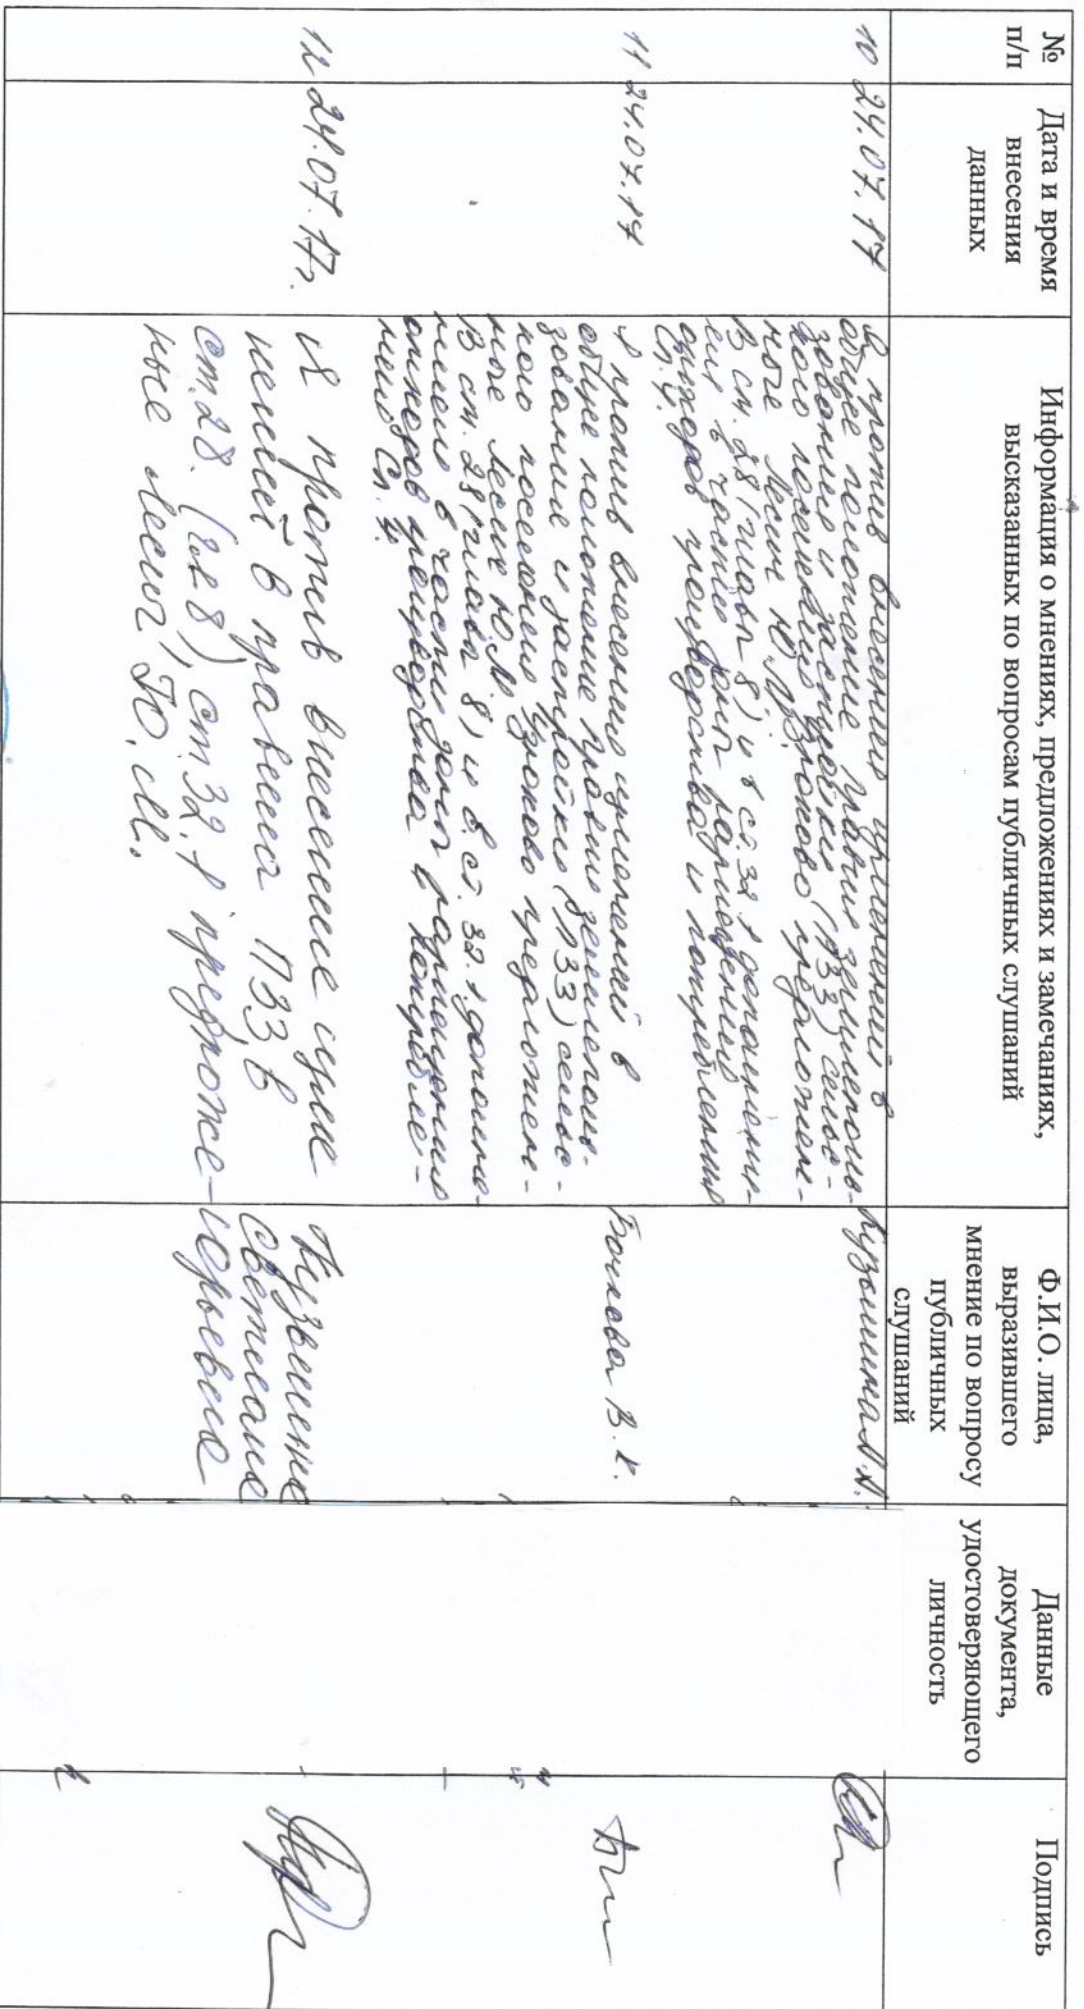 №
п/п
Дата и время
внесения
данных
Информация о мнениях, предложениях и замечаниях,
высказанных по вопросам публичных слушаний
Ф.И.О. лица,
выразившего
мнение по вопросу
публичных
слушаний
Данные
документа,
удостоверяющего
личность
Подпись
10
24.07.17
Я против внесения изменений в
общее положение Правил землеполь-
зования и застройки (ПЗЗ) сельс-
кого поселения Узюково предложен-
ные Лесик Ю.М.
В ст. 28 (глава 8) и в ст. 32.1 дополнени-
ем в части зоны размещения
отходов производства и потребления
Сп.4.
Кузьмина
11
24.07.17
Я против внесения изменений в
общее положение Правил землеполь-
зования и застройки (ПЗЗ) сельс-
кого поселения Узюково предложен-
ные Лесик Ю.М.
В ст. 28 (глава 8) и в ст. 32.1 дополне-
нием в части зоны размещения
отходов производства и потребле-
ния Сп.4.
Бочкова В.К.
12
24.07.17г.
Я против внесение изме
нений в правила ПЗЗ, в
ст.28. (гл 8), ст 32.1 предложе-
нные Лесик Ю.М.
Кузьмина
Светлана
Юрьевна